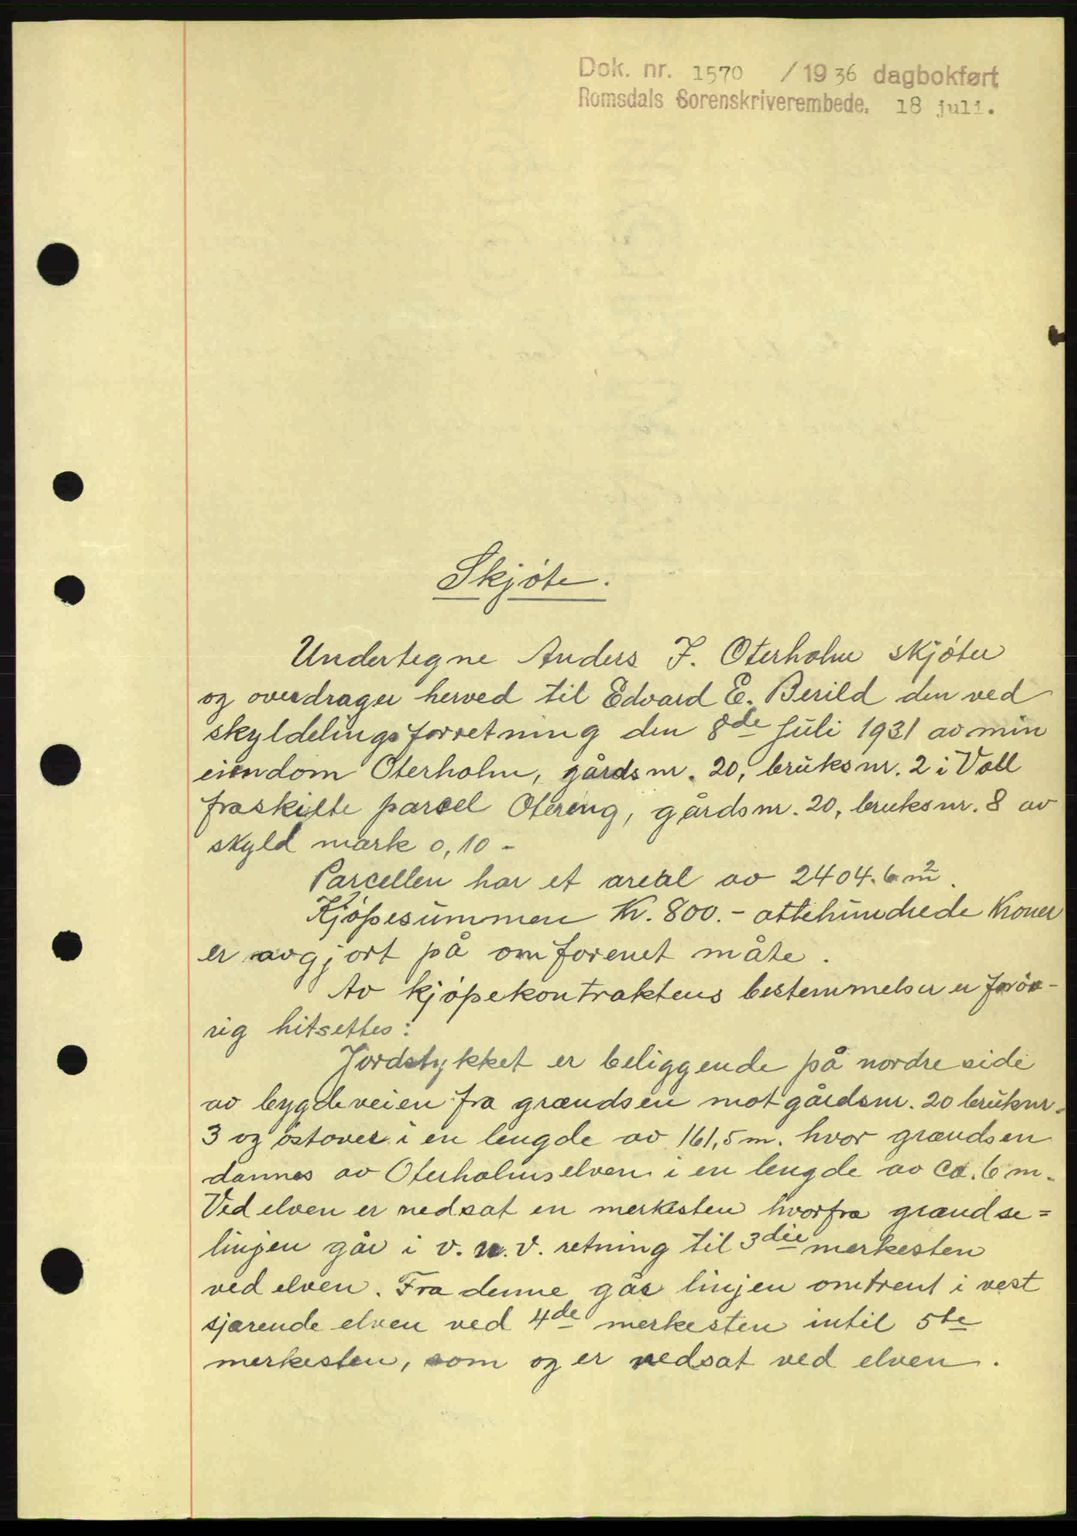 Dok. nr. 1570 / 1936 dagbokført
Romsdals Sorenskriverembede. 18 juli.
Skjøte.
Undertegne Anders J. Oterholm skjøter
og overdrager herved til Edvard E. Berild den ved
skyldelingsforretning den 8de Juli 1931 av min
eiendom Oterholm, gårdsnr. 20, bruksnr. 2 i Voll
fraskilte parsel Otereng, gårdsnr. 20, bruksnr. 8 av
skyld mark 0,10 -
Parcellen har et areal av 2404.6 m2.
Kjøpesummen Kr. 800.- ottehundrede Kroner
er avgjort på omforenet måte.
Av kjøpekontraktens bestemmelser er forøv-
rig hitsettes:
Jordstykket er beliggende på nordre side
av bygdeveien fra grændsen mot gårdsnr. 20 bruknr.
3 og østover i en lengde av 161,5 m. hvor grændsen
dannes av Oterholmselven i en lengde av ca. 6 m.
Ved elven er nedsat en merkesten hvorfra grændse=
linjen går i v. n. v. retning til 3die merkesten
ved elven. Fra denne går linjen omtrent i vest
sjærende elven ved 4de merkesten intil 5te
merkesten, som og er nedsat ved elven.